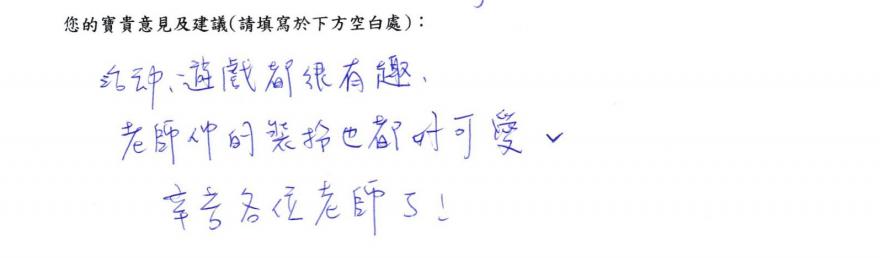 您的寶貴意見及建議(請填寫於下方空白處)：
活动、遊戲都很有趣、
老師们的裝扮也都好可愛
辛苦各位老師了！